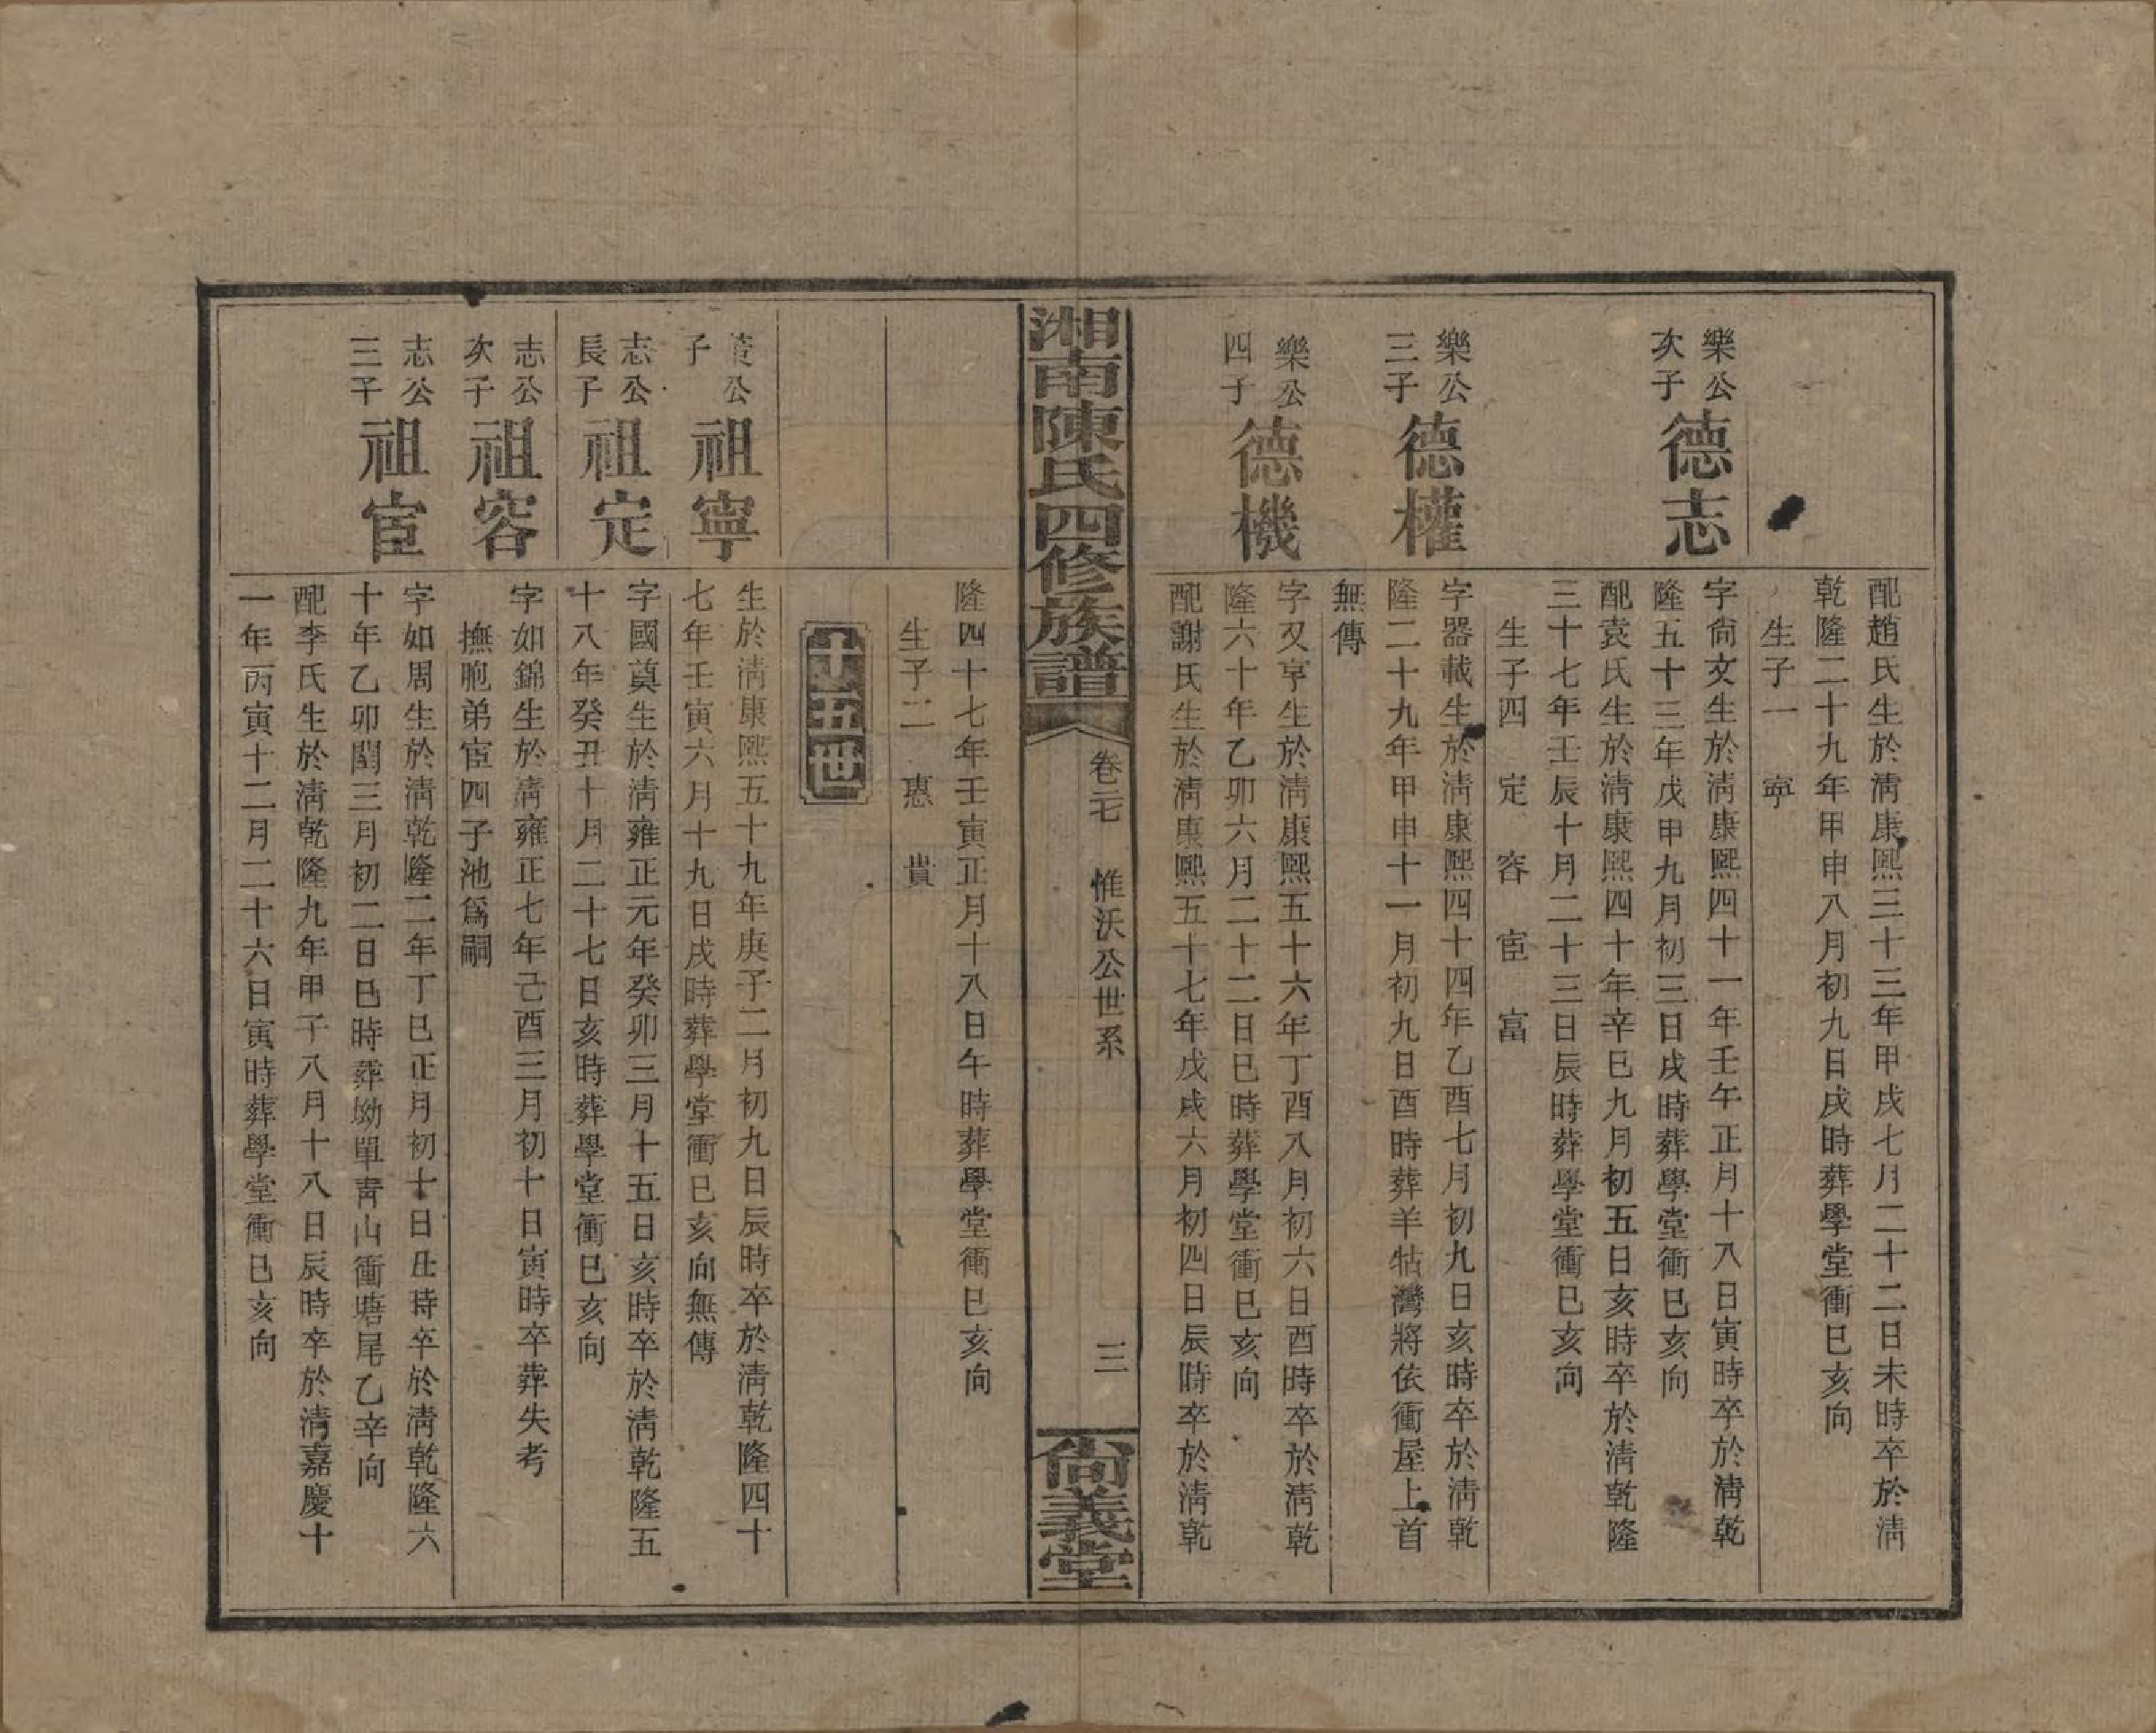 配趙氏生於淸康熙三十三年甲戌七月二十二日未時卒於淸
乾隆二十九年甲申八月初九日戌時葬學堂衝巳亥向
生子一　寧
樂公次子
德志
字尙文生於淸康熙四十一年壬午正月十八日寅時卒於淸乾
隆五十三年戊申九月初三日戌時葬學堂衝巳亥向
配袁氏生於淸康熙四十年辛巳九月初五日亥時卒於淸乾隆
三十七年壬辰十月二十三日辰時葬學堂衝巳亥向
生子四　定　容　宦　富
樂公三子
德權
字器載生於淸康熙四十四年乙酉七月初九日亥時卒於淸乾
隆二十九年甲申十一月初九日酉時葬羊牯灣將依衝屋上首
無傳
樂公四子
德機
字又亨生於淸康熙五十六年丁酉八月初六日酉時卒於淸乾
隆六十年乙卯六月二十二日巳時葬學堂衝巳亥向
配謝氏生於淸康熙五十七年戊戌六月初四日辰時卒於淸乾
湘南陳氏四修族譜
卷二七
惟沃公世系
三
尙義堂
隆四十七年壬寅正月十八日午時葬學堂衝巳亥向
生子二　惠　貴
十五世
公子
祖寧
生於淸康熙五十九年庚子二月初九日辰時卒於淸乾隆四十
七年壬寅六月十九日戌時葬學堂衝巳亥向無傳
志公長子
祖定
字國奠生於淸雍正元年癸卯三月十五日亥時卒於淸乾隆五
十八年癸丑十月二十七日亥時葬學堂衝巳亥向
志公次子
祖容
字如錦生於淸雍正七年己酉三月初十日寅時卒葬失考
撫胞弟宦四子池爲嗣
志公三子
祖宦
字如周生於淸乾隆二年丁巳正月初十日丑時卒於淸乾隆六
十年乙卯閏三月初二日巳時葬坳單靑山衝塘尾乙辛向
配李氏生於淸乾隆九年甲子八月十八日辰時卒於淸嘉慶十
一年丙寅十二月二十六日寅時葬學堂衝巳亥向